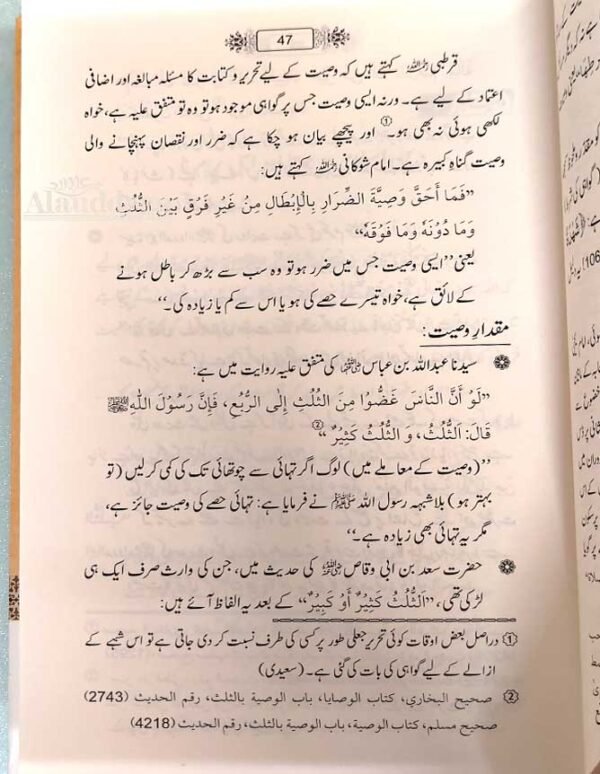 47
قرطبی رحمہ اللہ کہتے ہیں کہ وصیت کے لیے تحریر و کتابت کا مسئلہ مبالغہ اور اضافی
اعتماد کے لیے ہے۔ ورنہ ایسی وصیت جس پر گواہی موجود ہو تو وہ تو متفق علیہ ہے، خواہ
لکھی ہوئی نہ بھی ہو۔① اور پیچھے بیان ہو چکا ہے کہ ضرر اور نقصان پہنچانے والی
وصیت گناہِ کبیرہ ہے۔ امام شوکانی رحمہ اللہ کہتے ہیں:
”فَمَا أَحَقَّ وَصِيَّةَ الضِّرَارِ بِالْإِبْطَالِ مِنْ غَيْرِ فَرْقٍ بَيْنَ الثُّلُثِ
وَمَا دُوْنَهُ وَمَا فَوْقَهُ“
یعنی ”ایسی وصیت جس میں ضرر ہو تو وہ سب سے بڑھ کر باطل ہونے
کے لائق ہے، خواہ تیسرے حصے کی ہو یا اس سے کم یا زیادہ کی۔“
مقدارِ وصیت:
سیدنا عبداللہ بن عباس رضی اللہ عنہما کی متفق علیہ روایت میں ہے:
”لَوْ أَنَّ النَّاسَ غَضُّوْا مِنَ الثُّلُثِ إِلَى الرُّبُعِ، فَإِنَّ رَسُوْلَ اللّٰهِ ﷺ
قَالَ: اَلثُّلُثُ، وَ الثُّلُثُ كَثِيْرٌ“②
”(وصیت کے معاملے میں) لوگ اگر تہائی سے چوتھائی تک کی کمی کر لیں (تو
بہتر ہو) بلاشبہ رسول اللہ ﷺ نے فرمایا ہے: تہائی حصے کی وصیت جائز ہے،
مگر یہ تہائی بھی زیادہ ہے۔“
حضرت سعد بن ابی وقاص رضی اللہ عنہ کی حدیث میں، جن کی وارث صرف ایک ہی
لڑکی تھی، ”اَلثُّلُثُ كَثِيْرٌ أَوْ كَبِيْرٌ“ کے بعد یہ الفاظ آئے ہیں:
① دراصل بعض اوقات کوئی تحریر جعلی طور پر کسی کی طرف نسبت کر دی جاتی ہے تو اس شبہے کے
ازالے کے لیے گواہی کی بات کی گئی ہے۔ (سعیدی)
② صحيح البخاري، كتاب الوصايا، باب الوصية بالثلث، رقم الحديث (2743)
صحيح مسلم، كتاب الوصية، باب الوصية بالثلث، رقم الحديث (4218)